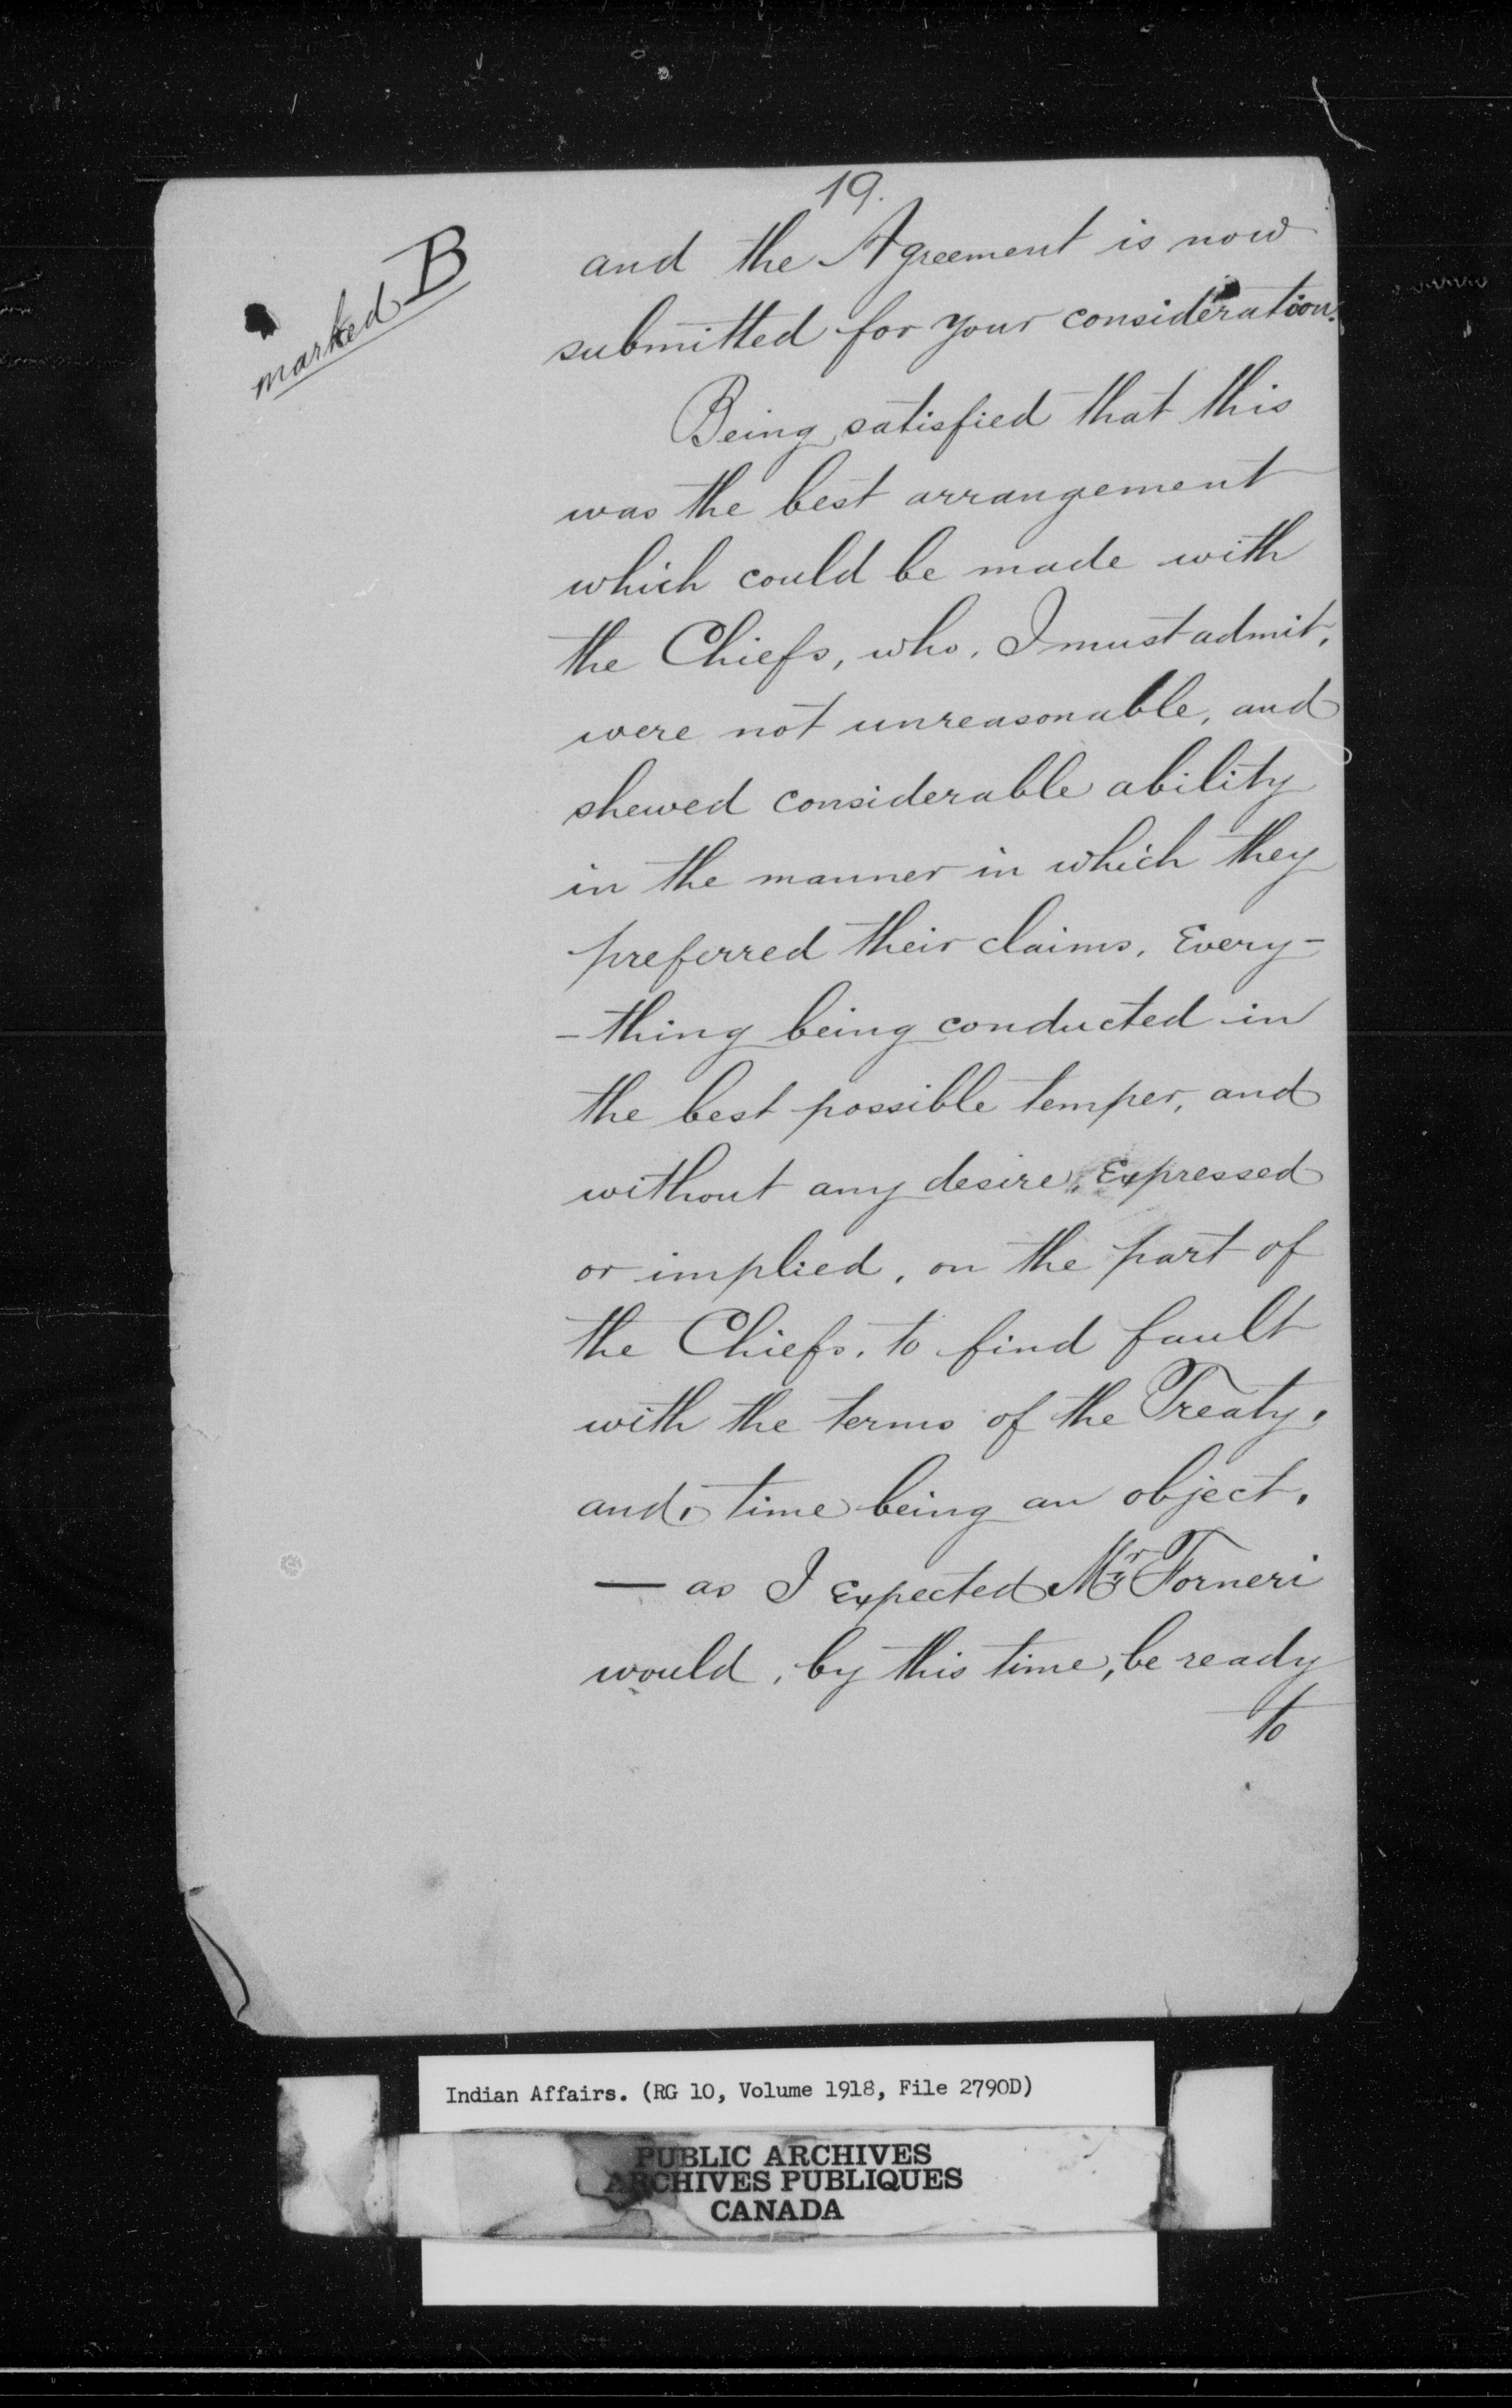 19.
marked B
and the Agreement is now
submitted for your consideration.
Being satisfied that this
was the best arrangement
which could be made with
the Chiefs, who, I must admit,
were not unreasonable, and
shewed considerable ability
in the manner in which they
preferred their claims, Every-
-thing being conducted in
the best possible temper, and
without any desire, Expressed
or implied, on the part of
the Chiefs, to find fault
with the terms of the Treaty,
and, time being an object,
— as I Expected Mr Forneri
would, by this time, be ready
to
Indian Affairs. (RG 10, Volume 1918, File 2790D)
PUBLIC ARCHIVES
ARCHIVES PUBLIQUES
CANADA